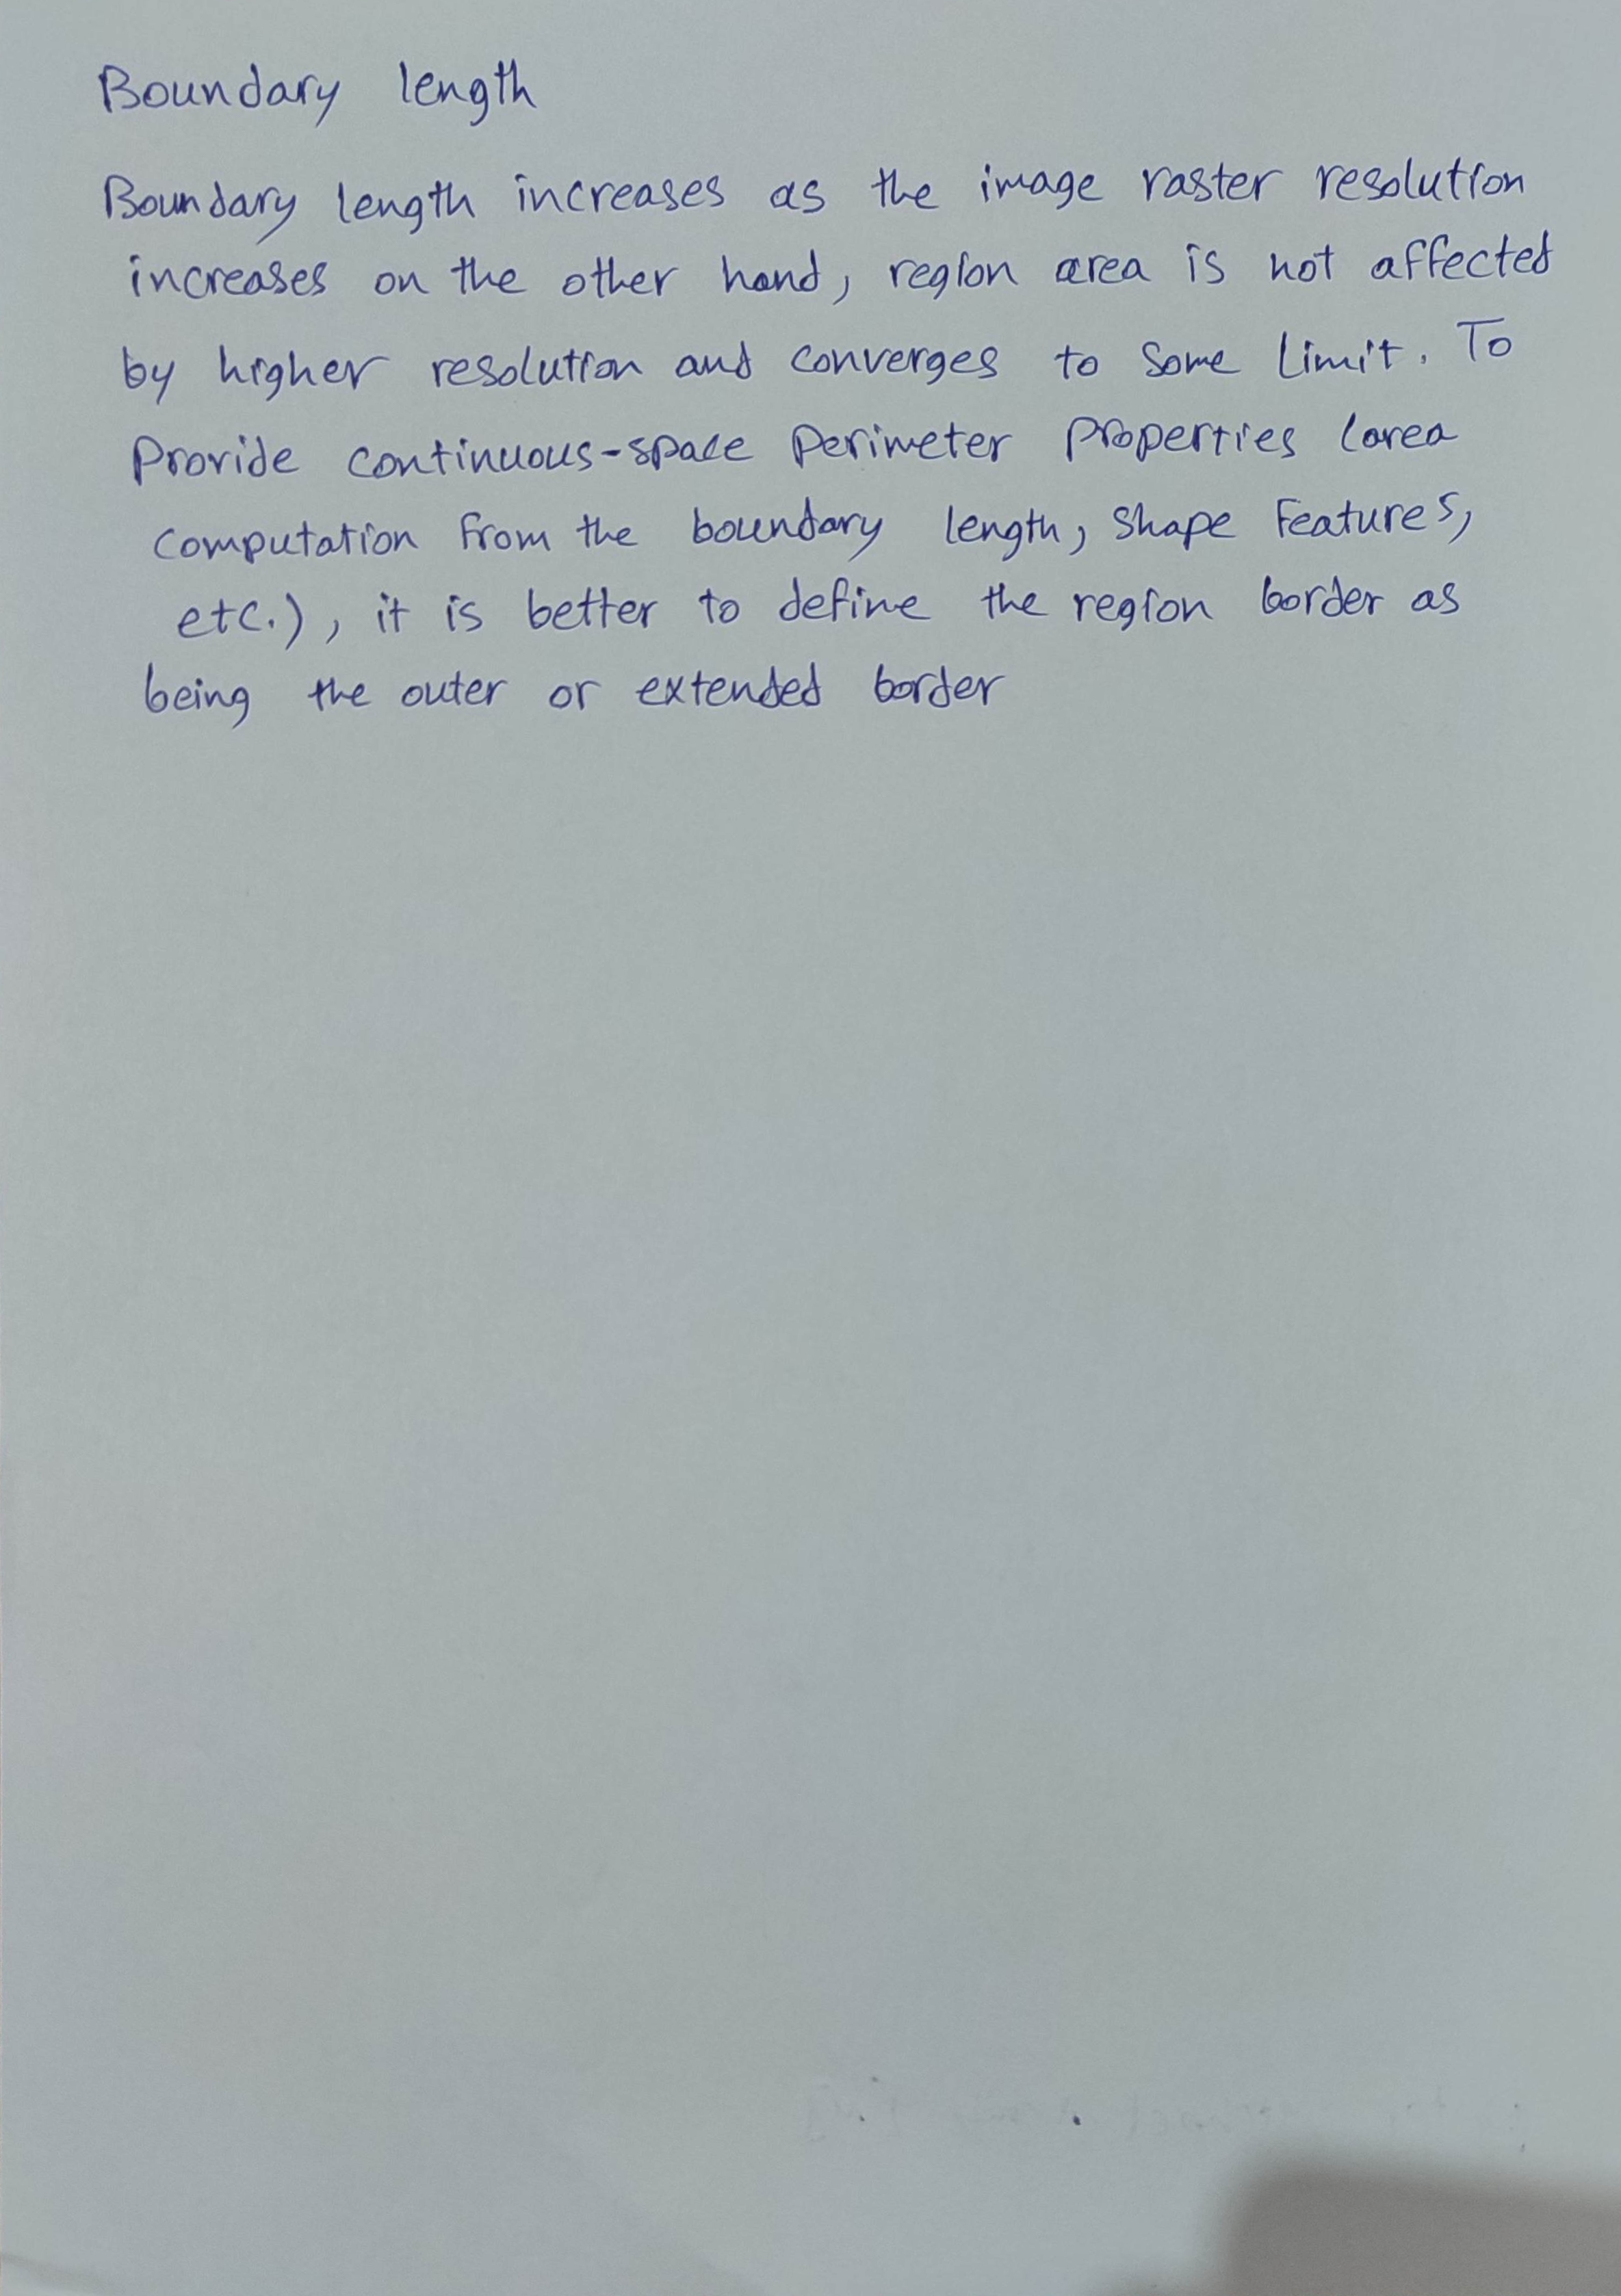 Boundary length
Boundary length increases as the image raster resolution
increases on the other hand, region area is not affected
by higher resolution and converges to some limit. To
Provide continuous-space Perimeter Properties (area
computation from the boundary length, shape features,
etc.), it is better to define the region border as
being the outer or extended border